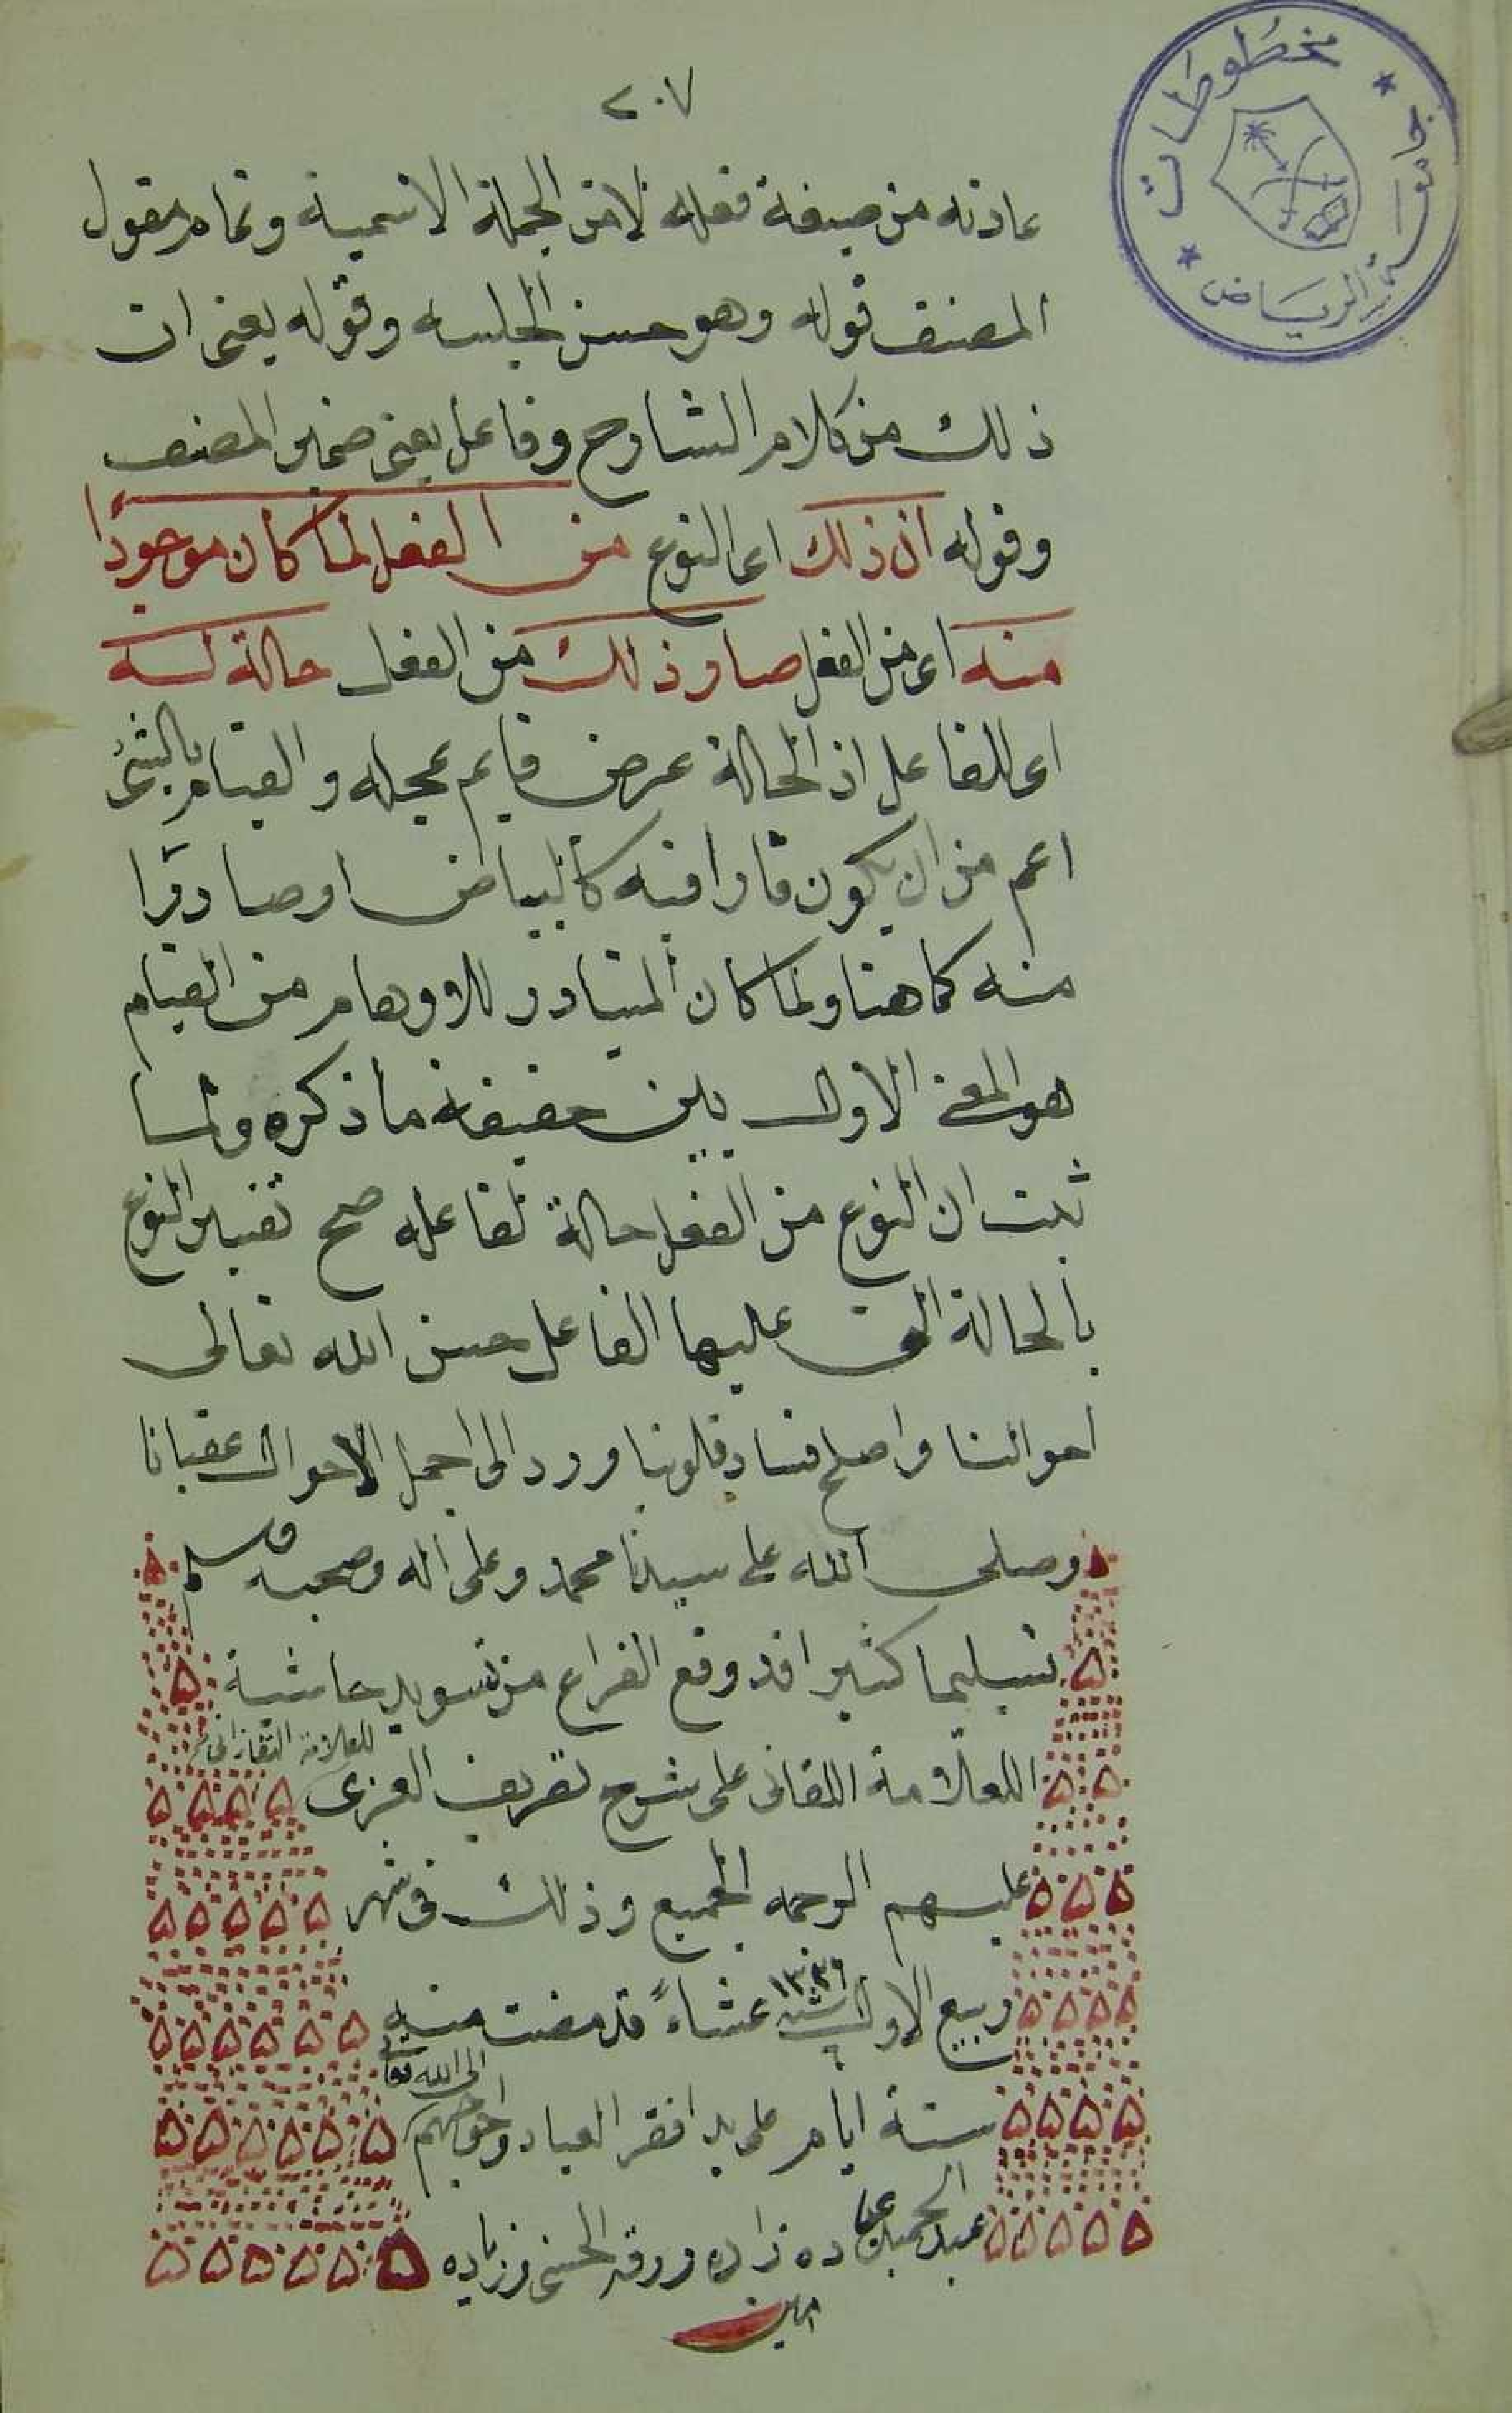 ٢٠٧
مخطوطات
جامعة الرياض
عادته من صيغة فعله لا من الجملة الاسمية وتمام مقول
المصنف قوله وهو حسن الجلسه وقوله يعني ان
ذلك من كلام الشارح وفاعل يعني ضمير المصنف
وقوله ان ذلك اى النوع من الفعل لما كان موجودًا
منه اى من الفعل صار ذلك من الفعل حالة له
اى للفاعل اذ الحالة عرض قايم بمحله والقيام بالشئ
اعم من ان يكون قارا فيه كالبياض او صادرًا
منه كما هنا ولما كان المتبادر للاوهام من القيام
هو المعنى الاول بين حقيقة ما ذكره ولما
ثبت ان النوع من الفعل حالة لفاعله صح تفسير النوع
بالحالة التى عليها الفاعل حسن الله تعالى
احوالنا واصلح فساد قلوبنا ورد الى اجمل الاحوال عقبانا
وصلى الله على سيدنا محمد وعلى اله وصحبه وسلم
تسليما كثيرا قد وقع الفراغ من تسويد حاشية
العلّامة اللقانى على شرح تصريف العزى للعلامة التفتازانى
عليهم الرحمه الجميع وذلك فى شهر
ربيع الاول سنة ١٣٣٩ عشاءً قد مضت منه
ستة ايام على يد افقر العباد واحوجهم الى الله تعالى
عبد الحميد عباده زاده ورقه الحسنى وزياده
امين